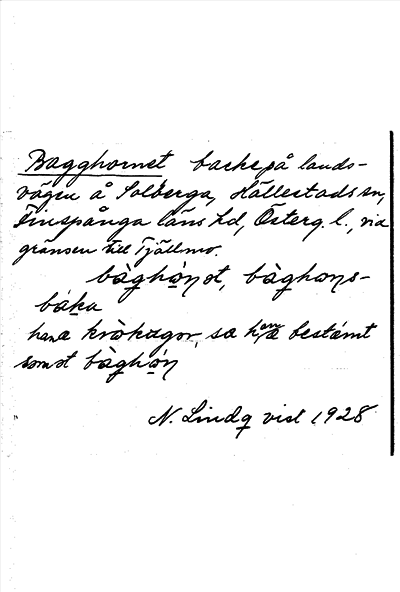 Bagghornet backe på lands-
vägen å Solberga, Hällestads sn,
Finspånga läns hd, Österg. l., vid
gränsen till Tjällmo.
bàghòn̥ot, bàghons-
báka
hana kròkugor, sa hana bestámt
somot bàghòn̥
N. Lindq vist 1928